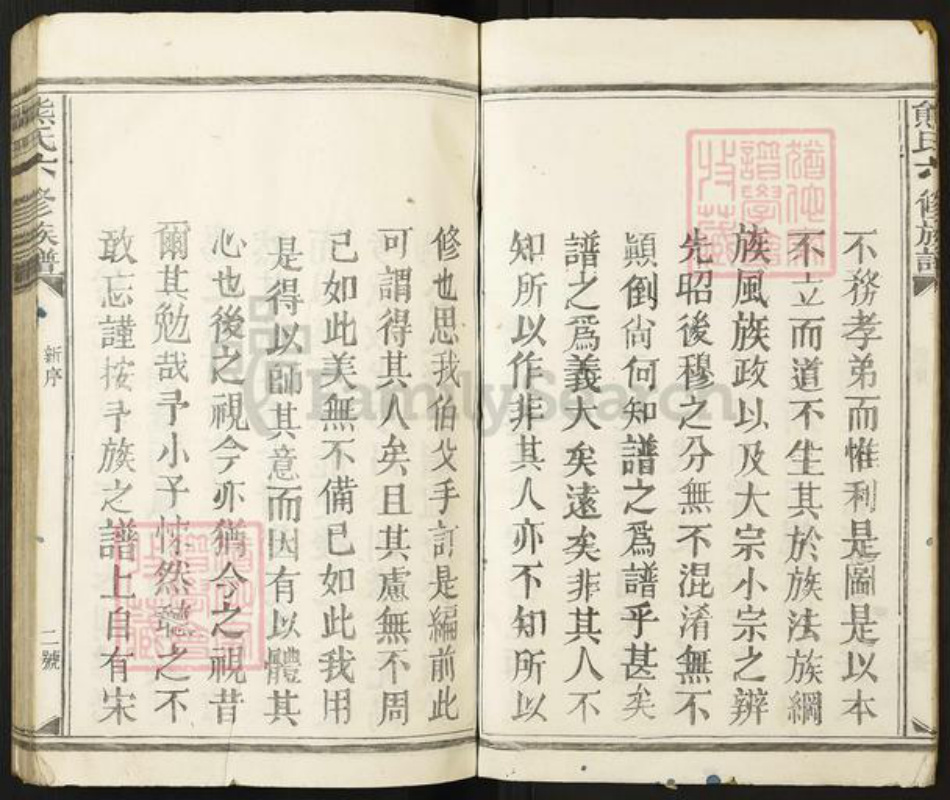 熊氏六修族譜
不務孝弟而惟利是圖是以本
不立而道不生其於族法族綱
族風族政以及大宗小宗之辨
先昭後穆之分無不混淆無不
顚倒尙何知譜之爲譜乎甚矣
譜之爲義大矣遠矣非其人不
知所以作非其人亦不知所以
修也思我伯父手訂是編前此
可謂得其人矣且其慮無不周
已如此美無不備已如此我用
是得以師其意而因有以體其
心也後之視今亦猶今之視昔
爾其勉哉予小子悚然聽之不
敢忘謹按予族之譜上自有宋
熊氏六修族譜
新序
二號
FamilySearch